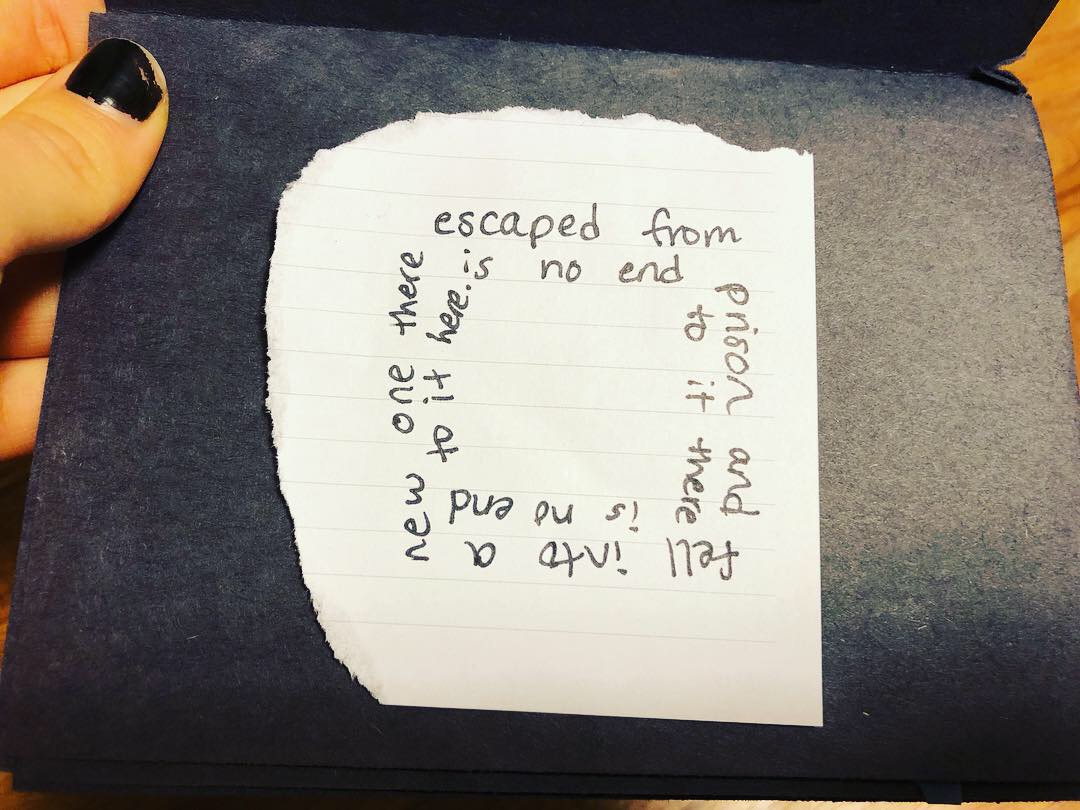 escaped from
prison and
fell into a
new one there
is no end
to it there
is no end
to it here.